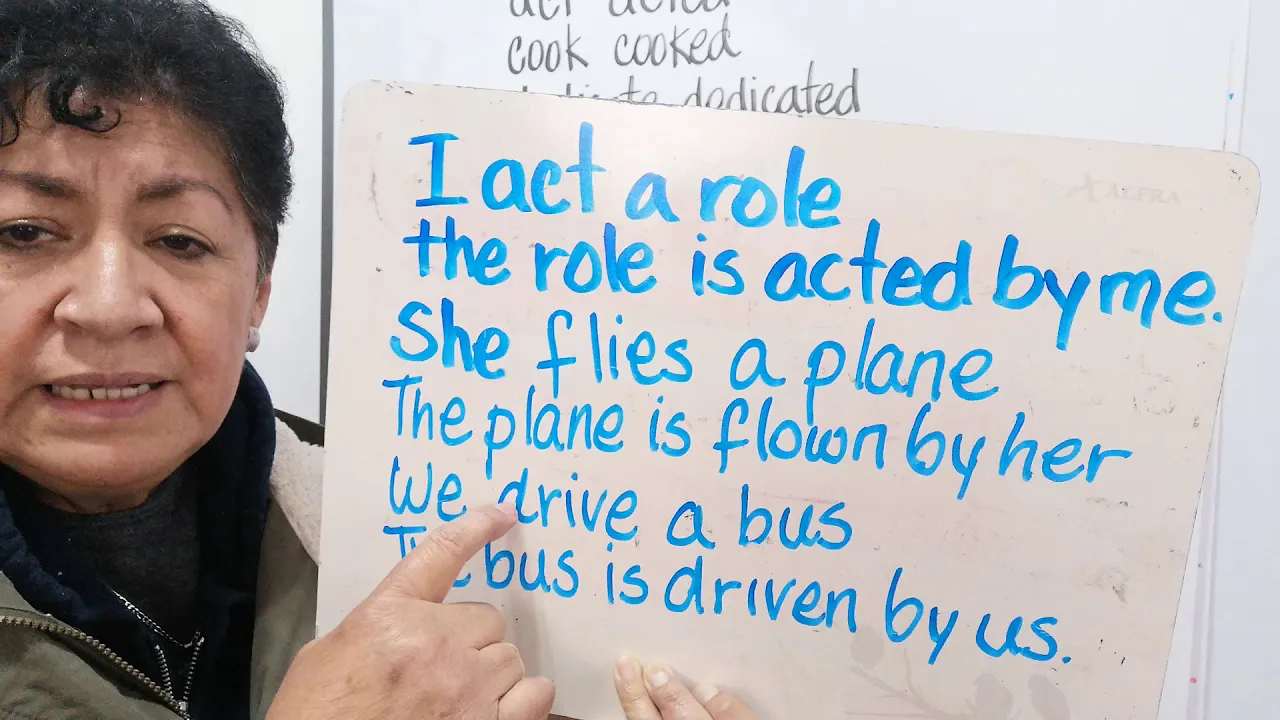 cook cooked
dedicated
ALFRA
I act a role
the role is acted by me.
She flies a plane
The plane is flown by her
We drive a bus
bus is driven by us.